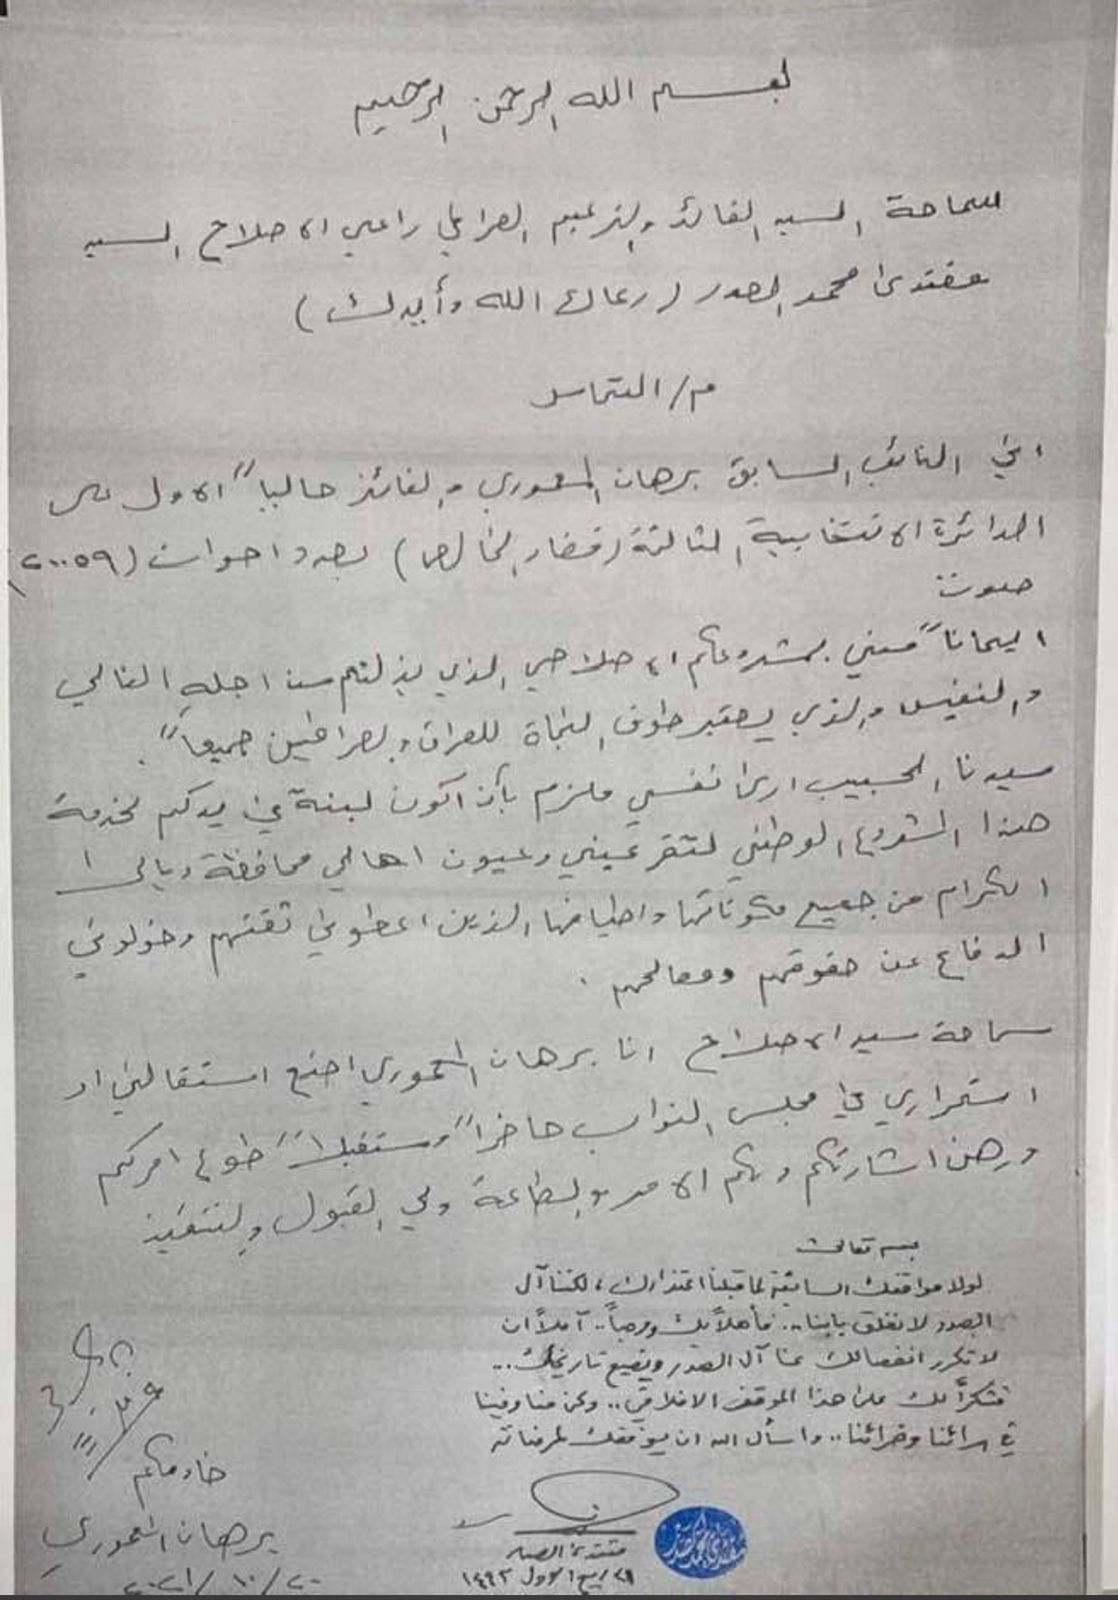 بسم الله الرحمن الرحيم
لسماحة السيد القائد والزعيم العراقي راعي الاصلاح السيد
مقتدى محمد الصدر (رعاك الله وأيدك)
م/ التماس
اني النائب السابق برهان المعموري والفائز حالياً الاول على
الدائرة الانتخابية الثالثة (قضاء الخالص) بعدد اصوات (٢٠٠٥٩)
صوت
ايماناً مني بمشروعكم الاصلاحي الذي بذلتم من اجله الغالي
والنفيس والذي يعتبر طوق النجاة للعراق والعراقيين جميعاً.
سيدنا الحبيب ارى نفسي ملزم بأن اكون لبنة في يدكم لخدمة
هذا المشروع الوطني لتقر عيني وعيون اهالي محافظة ديالى
الكرام من جميع مكوناتها واطيافها الذين اعطوني ثقتهم وخولوني
الدفاع عن حقوقهم ومصالحهم.
سماحة سيد الاصلاح انا برهان المعموري اضع استقالتي او
استمراري في مجلس النواب حاضراً ومستقبلاً طوع امركم
ورهن اشارتكم ولكم الامر والطاعة ولي القبول والتنفيذ
بسمه تعالى
لولا مواقفك السابقة لما قبلنا اعتذارك، لكننا آل
الصدر لا نغلق بابنا.. فأهلاً بك ومرحباً.. آملاً ان
لا تكرر انفصالك عنا آل الصدر وتضيع تاريخك...
فشكراً لك على هذا الموقف الاخلاقي.. وكن منا وفينا
في سرائنا وضرائنا.. واسأل الله ان يوفقك لمرضاته
مقتدى الصدر
ربيع الاول ١٤٤٣
خادمكم
برهان المعموري
٢٠/١٠/٢٠٢١